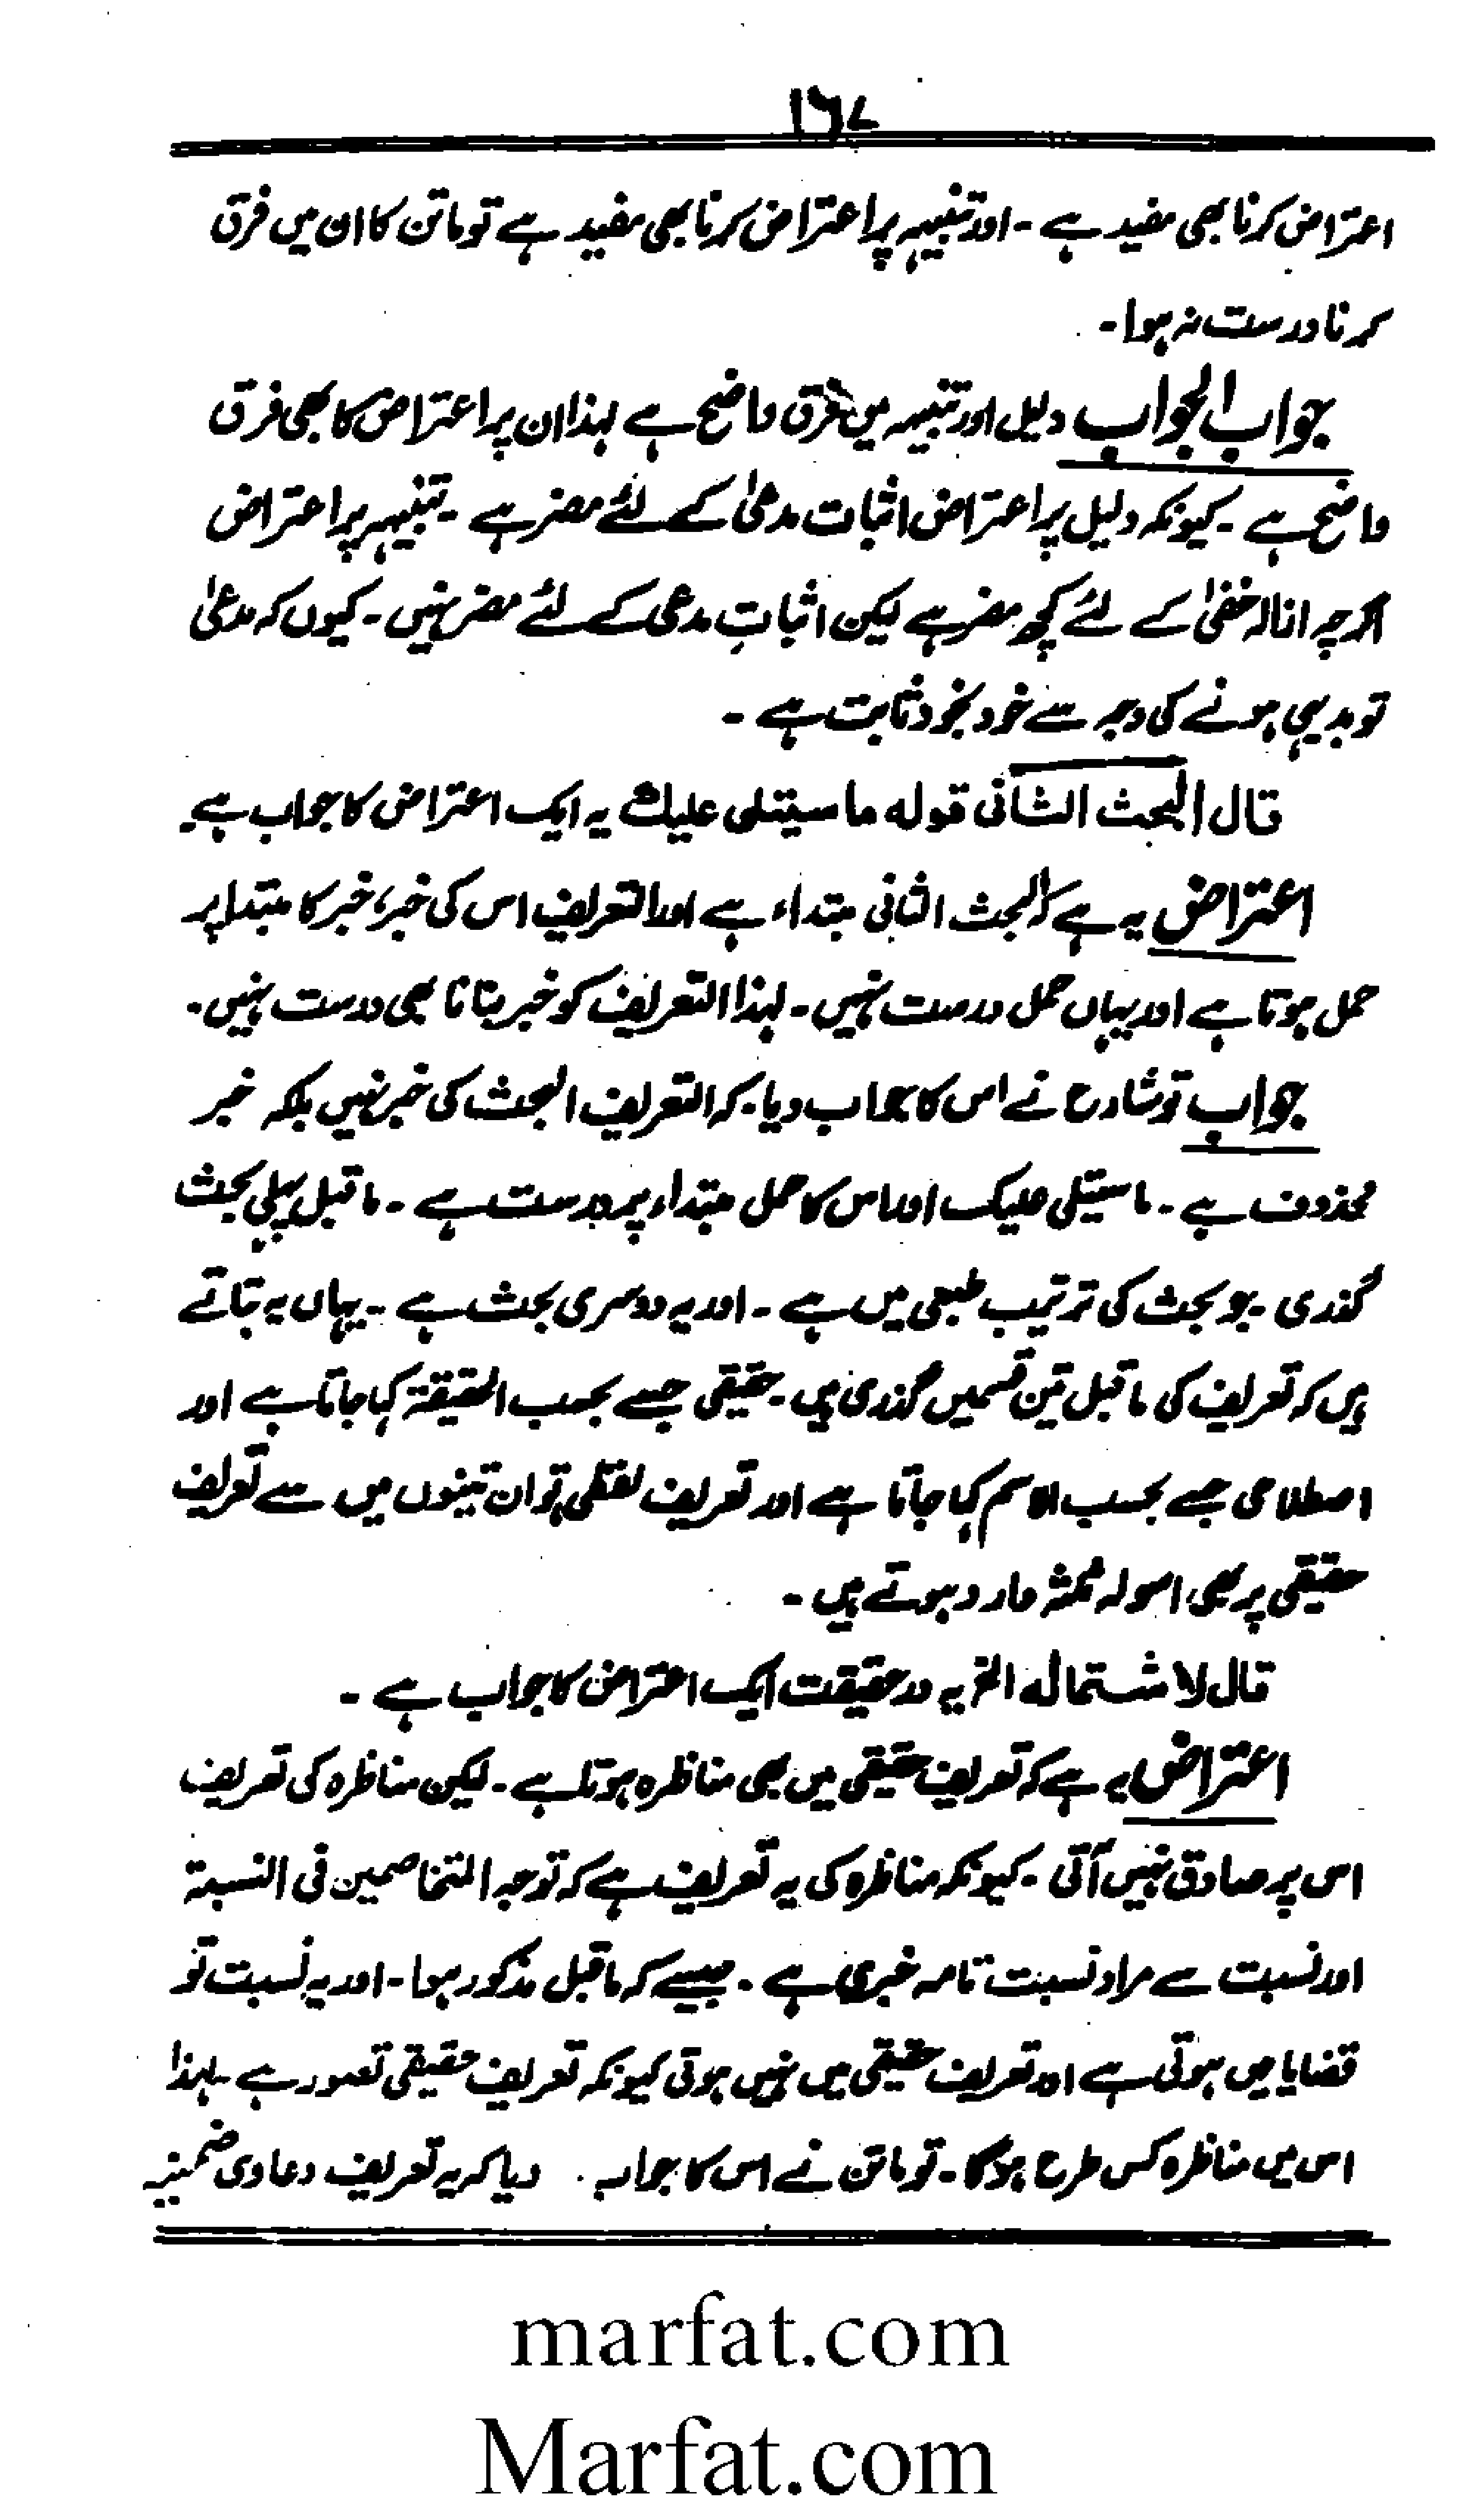 ۱۶۷
اعتراض کرنا بھی مفید ہے ۔ اور تنبیہہ پر اعتراض کرنا بھی مفید ہے تو ماتن کا ان میں فرق
کرنا درست نہ ہوا ۔
جواب الجواب دلیل اور تنبیہہ میں فرق واضح ہے لہذا ان پر اعتراض کا بھی فرق
واضح ہے ۔ کیونکہ دلیل پر اعتراض اثبات مدعیٰ کے لئے مضر ہے ۔ تنبیہہ پر اعتراض
اگرچہ ازالہ خفیٰ کے لئے کچھ مضر ہے لیکن اثباتِ مدعی کے لئے مضر نہیں ۔ کیوں کہ مدعیٰ
تو بدیہی ہونے کی وجہ سے خود بخود ثابت ہے ۔
قال البحث الثانی قوله ما سیتلی علیك یہ ایک اعتراض کا جواب ہے ۔
اعتراض یہ ہے کہ البحث الثانی مبتداء ہے اور التعریف اس کی خبر، خبر کا مبتدا پر
حمل ہوتا ہے اور یہاں حمل درست نہیں ۔ لہذا التعریف کو خبر بنانا بھی درست نہیں ۔
جواب تو شارح نے اس کا جواب دیا ۔ کہ التعریف البحث کی خبر نہیں بلکہ خبر
محذوف ہے ۔ ما سیتلی علیک اور اس کا حمل مبتداء پر درست ہے ۔ ماقبل پہلی بحث
گذری ۔ جو بحث کی ترتیب طبعی میں ہے ۔ اور یہ دوسری بحث ہے ۔ یہاں یہ بتاتے
ہیں کہ تعریف کی ماقبل تین قسمیں گذری ہیں ۔ حقیقی جسے بحسب الحقیقۃ کہا جاتا ہے اور
اصطلاحی جسے بحسب الاسم کہا جاتا ہے اور تعریف لفظی تو ان تینوں میں سے تعریف
حقیقی پر بھی اسولہ ثلٰثہ وارد ہوتے ہیں ۔
قال لاشتماله الخ یہ درحقیقت ایک اعتراض کا جواب ہے ۔
اعتراض یہ ہے کہ تعریف حقیقی میں بھی مناظرہ ہوتا ہے ۔ لیکن مناظرہ کی تعریف
اس پر صادق نہیں آتی ۔ کیونکہ مناظرہ کی یہ تعریف ہے کہ توجہ المتخاصمین فی النسبۃ
اور نسبت سے مراد نسبت تامہ خبری ہے ۔ جیسے کہ ماقبل مذکور ہوا ۔ اور یہ نسبت تو
قضایا میں ہوتی ہے اور تعریف حقیقی میں نہیں ہوتی کیونکہ تعریف حقیقی تصور ہے ۔ لہذا
اس میں مناظرہ کس طرح ہوگا ۔ تو ماتن نے اس کا جواب دیا کہ یہ تعریف دعاوی ضمنیہ
marfat.com
Marfat.com